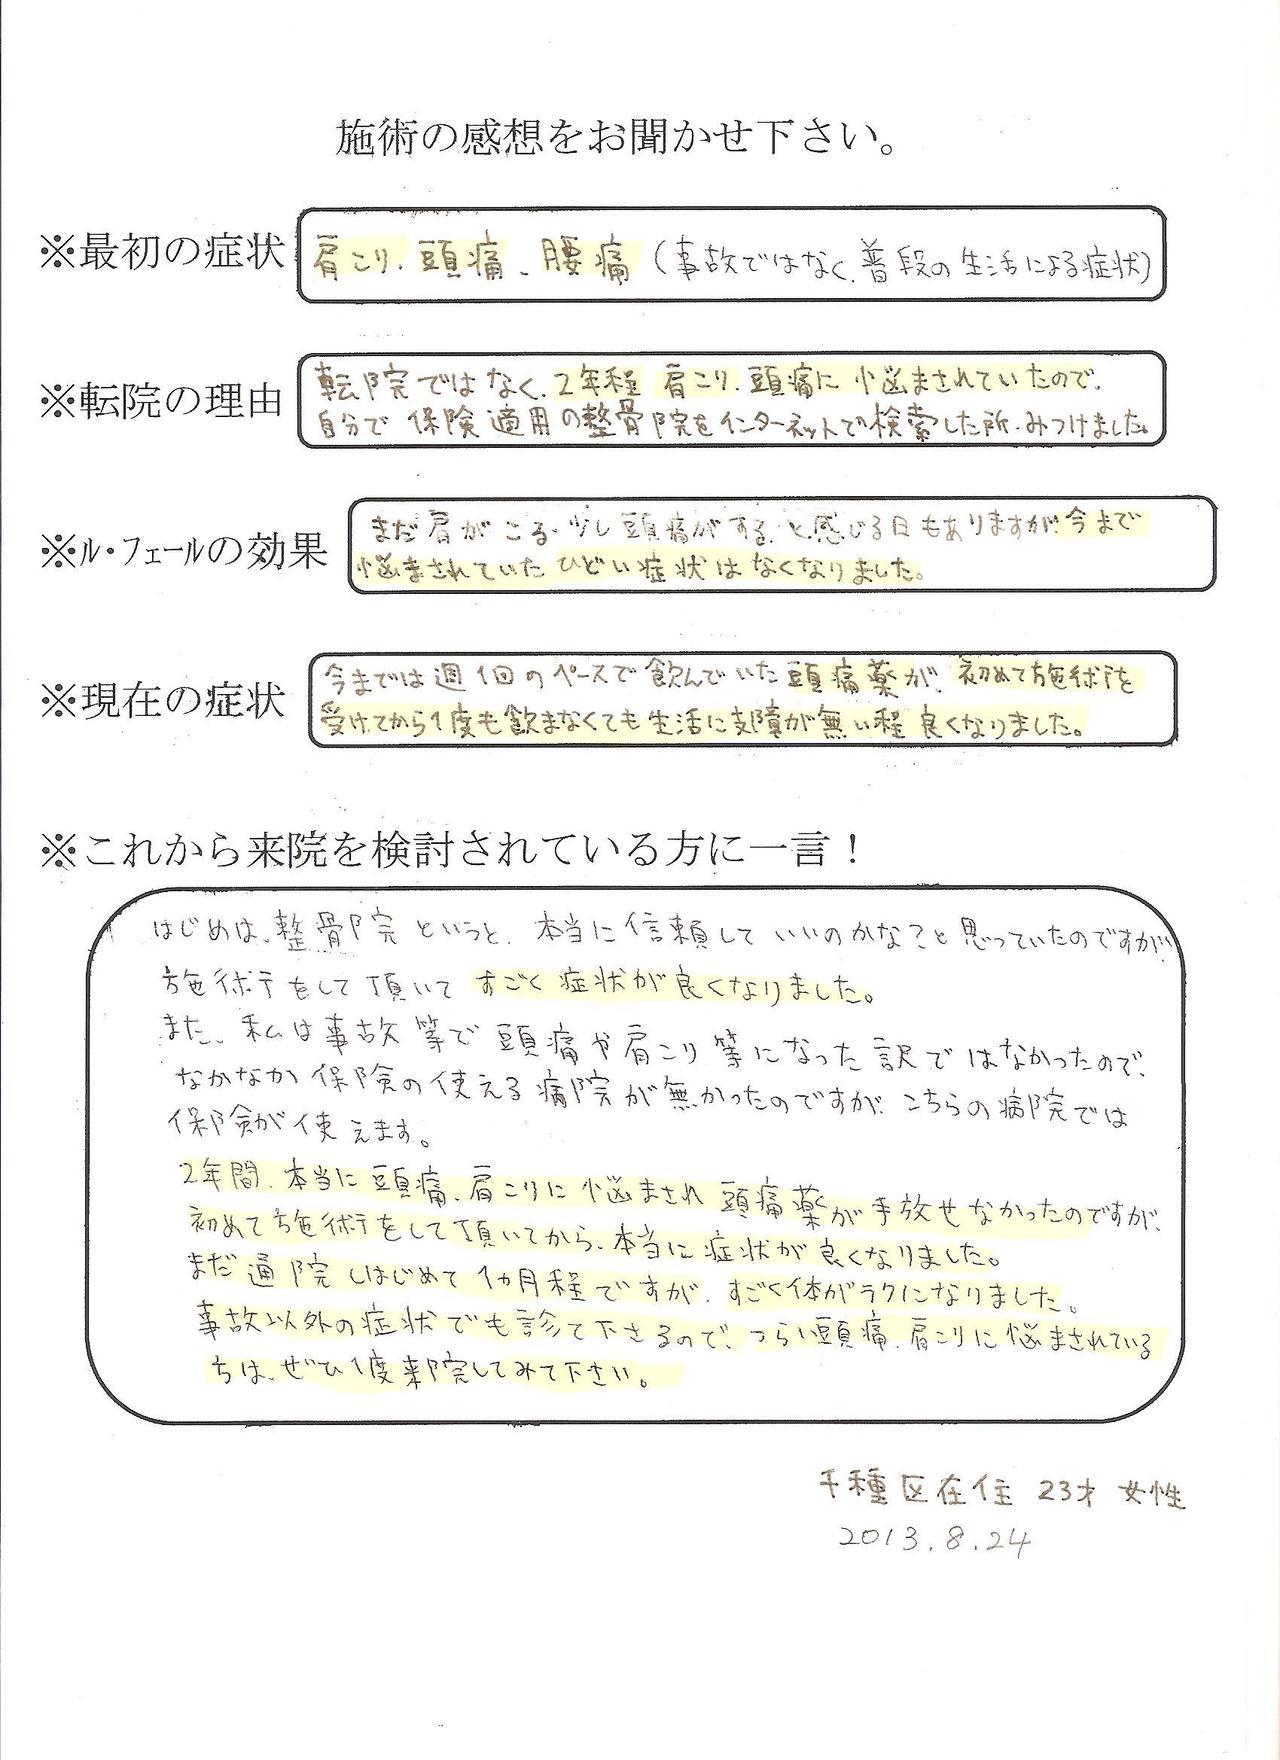 施術の感想をお聞かせ下さい。
※最初の症状
肩こり、頭痛、腰痛(事故ではなく、普段の生活による症状)
※転院の理由
転院ではなく、2年程 肩こり、頭痛に悩まされていたので、
自分で保険適用の整骨院をインターネットで検索した所、みつけました。
※ル・フェールの効果
まだ肩がこる、少し頭痛がする、と感じる日もありますが、今まで
悩まされていたひどい症状はなくなりました。
※現在の症状
今までは週1回のペースで飲んでいた頭痛薬が、初めて施術を
受けてから1度も飲まなくても生活に支障が無い程良くなりました。
※これから来院を検討されている方に一言！
はじめは、整骨院というと、本当に信頼していいのかな？と思っていたのですが、
施術をして頂いてすごく症状が良くなりました。
また、私は事故等で頭痛や肩こり等になった訳ではなかったので、
なかなか保険の使える病院が無かったのですが、こちらの病院では
保険が使えます。
2年間、本当に頭痛、肩こりに悩まされ頭痛薬が手放せなかったのですが、
初めて施術をして頂いてから、本当に症状が良くなりました。
まだ通院しはじめて1カ月程ですが、すごく体がラクになりました。
事故以外の症状でも診て下さるので、つらい頭痛、肩こりに悩まされている
ちは、ぜひ1度来院してみて下さい。
千種区在住 23才 女性
2013.8.24